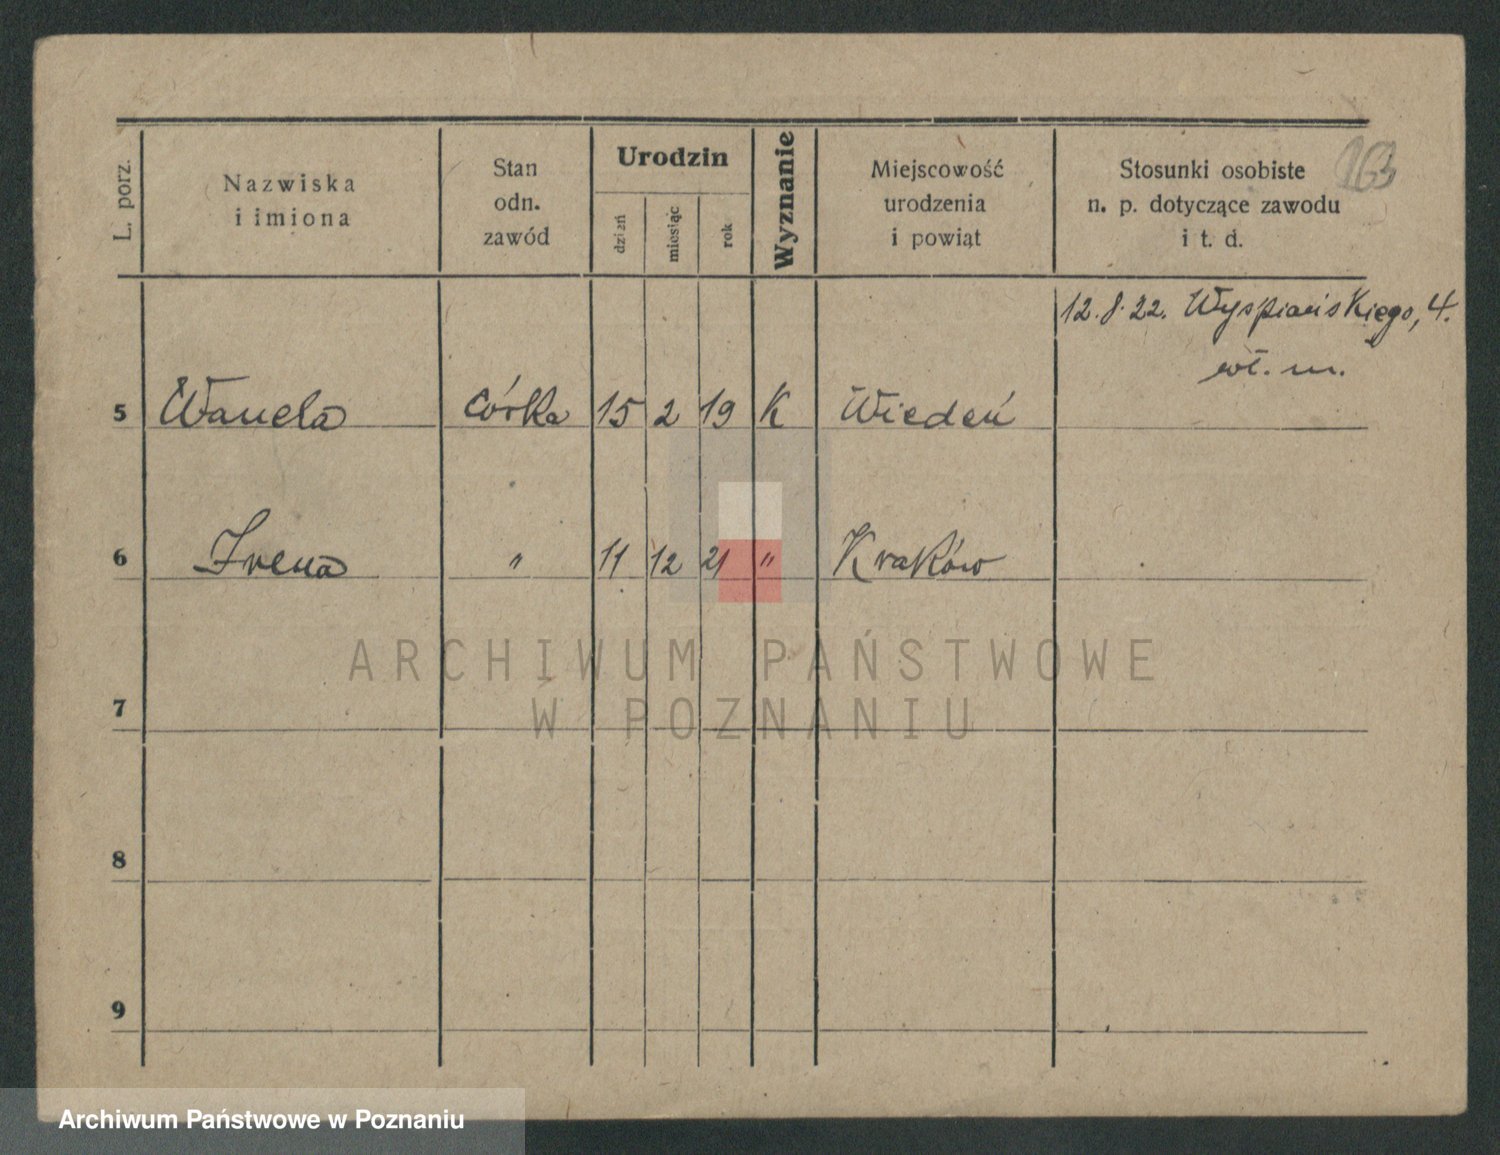 163
L. porz.
Nazwiska
i imiona
Stan
odn.
zawód
Urodzin
dzień
miesiąc
rok
Wyznanie
Miejscowość
urodzenia
i powiąt
Stosunki osobiste
n. p. dotyczące zawodu
i t. d.
12.8.22. Wyspiańskiego, 4.
wł. m.
5 Wanda córka 15 2 19 K Wiedeń
6 Irena " 11 12 21 " Kraków
7
8
9
ARCHIWUM PAŃSTWOWE
W POZNANIU
Archiwum Państwowe w Poznaniu